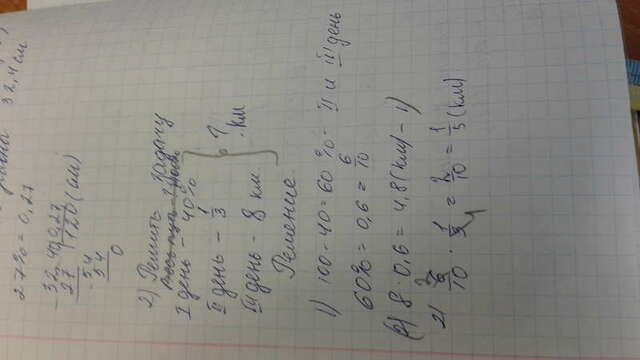 равны 32,4 см
27% = 0,27
32,40 | 0,27
27 | 120 (см)
54
54
0
2) Решить задачу
Весь путь - ? км
I день - 40%
II день - 1/3
? км
III день - 8 км
Решение
1) 100 - 40 = 60 % - II и III день
60% = 0,6 = 6/10
2) 8 · 0,6 = 4,8 (км) - 1)
2) 6/10 · 1/3 = 2/10 = 1/5 (км)